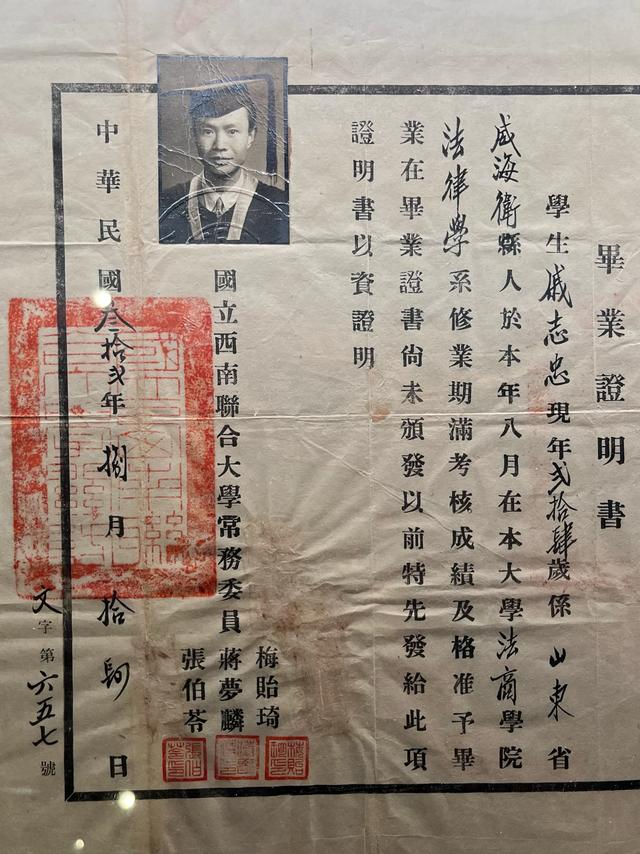 畢業證明書
學生戚志忠現年弍拾肆歲係山東省
威海衛縣人於本年八月在本大學法商學院
法律學系修業期滿考核成績及格准予畢
業在畢業證書尙未頒發以前特先發給此項
證明書以資證明
國立西南聯合大學常務委員
梅貽琦
蔣夢麟
張伯苓
中華民國叁拾弍年捌月拾 日
文字第六五七號